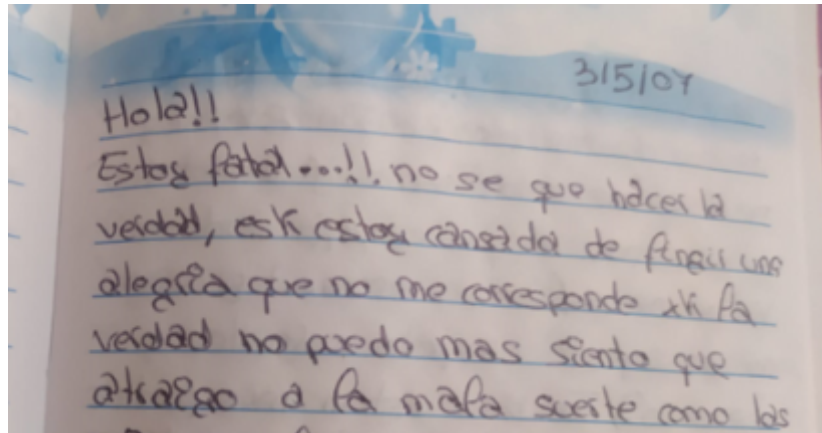 3/5/07
Hola!!
Estoy fatal...!! no se que hacer la
verdad, esk estoy cansada de fingir una
alegria que no me corresponde xk la
verdad no puedo mas siento que
atraigo a la mala suerte como las